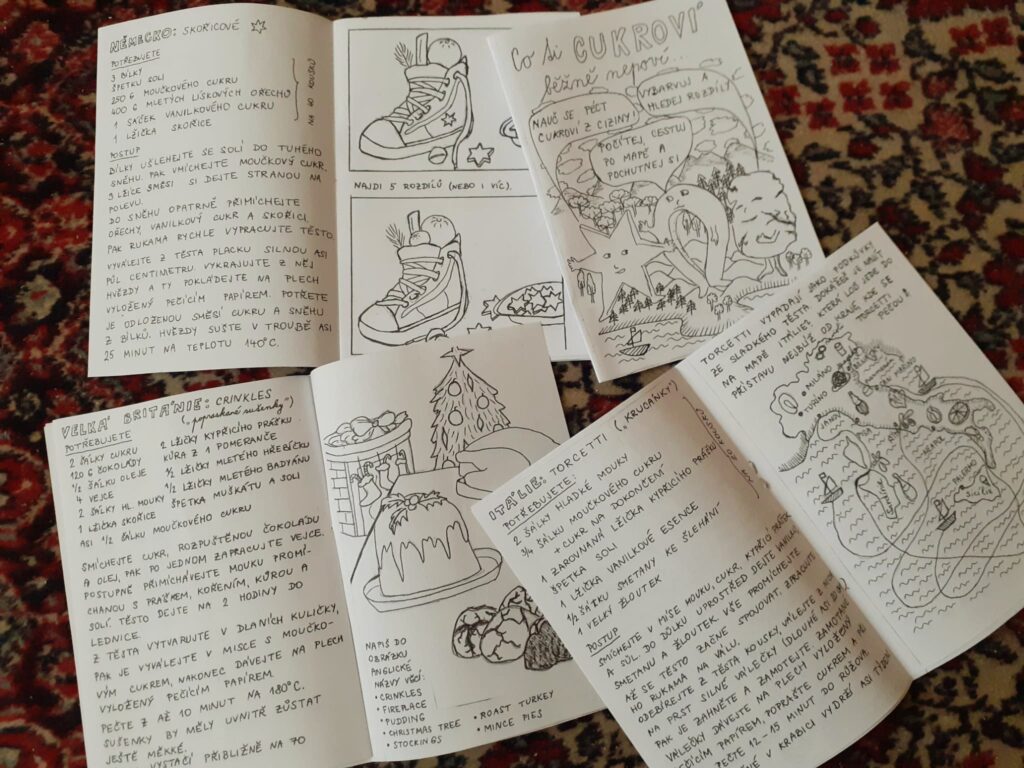 NĚMECKO: SKOŘICOVÉ
POTŘEBUJETE
3 BÍLKY
ŠPETKU SOLI
250 G MOUČKOVÉHO CUKRU
400 G MLETÝCH LÍSKOVÝCH OŘECHŮ
1 SÁČEK VANILKOVÉHO CUKRU
1 LŽIČKA SKOŘICE
NA 40 KOUSKŮ
POSTUP
BÍLKY UŠLEHEJTE SE SOLÍ DO TUHÉHO
SNĚHU. PAK VMÍCHEJTE MOUČKOVÝ CUKR.
LŽÍCE SMĚSI SI DEJTE STRANOU NA
POLEVU.
DO SNĚHU OPATRNĚ PŘIMÍCHEJTE
OŘECHY, VANILKOVÝ CUKR A SKOŘICI.
PAK RUKAMA RYCHLE VYPRACUJTE TĚSTO.
VYVÁLEJTE Z TĚSTA PLACKU SILNOU ASI
PŮL CENTIMETRU VYKRAJUJTE Z NĚJ
HVĚZDY A TY POKLÁDEJTE NA PLECH
VYLOŽENÝ PEČICÍM PAPÍREM. POTŘETE
JE ODLOŽENOU SMĚSÍ CUKRU A SNĚHU
Z BÍLKŮ. HVĚZDY SUŠTE V TROUBĚ ASI
25 MINUT NA TEPLOTU 140°C.
NAJDI 5 ROZDÍLŮ (NEBO I VÍC).
Co si CUKROVÍ
běžně nepoví...
NAUČ SE PÉCT
CUKROVÍ Z CIZINY!
VYBARVUJ A
HLEDEJ ROZDÍLY
POČÍTEJ, CESTUJ
PO MAPĚ A
POCHUTNEJ SI
VELKÁ BRITÁNIE: CRINKLES
("popraskané sušenky")
POTŘEBUJETE
2 ŠÁLKY CUKRU
120 G ČOKOLÁDY
1/2 ŠÁLKU OLEJE
4 VEJCE
2 ŠÁLKY HL. MOUKY
1 LŽIČKA SKOŘICE
ASI 1/2 ŠÁLKU MOUČKOVÉHO CUKRU
2 LŽIČKY KYPŘICÍHO PRÁŠKU
KŮRA Z 1 POMERANČE
1/2 LŽIČKY MLETÉHO HŘEBÍČKU
1/2 LŽIČKY MLETÉHO BADYÁNU
ŠPETKA MUŠKÁTU A SOLI
SMÍCHEJTE CUKR, ROZPUŠTĚNOU ČOKOLÁDU
A OLEJ, PAK PO JEDNOM ZAPRACUJTE VEJCE.
POSTUPNĚ PŘIMÍCHÁVEJTE MOUKU PROMÍ-
CHANOU S PRÁŠKEM, KOŘENÍM, KŮROU A
SOLÍ. TĚSTO DEJTE NA 2 HODINY DO
LEDNICE.
Z TĚSTA VYTVARUJTE V DLANÍCH KULIČKY,
PAK JE VYVÁLEJTE V MISCE S MOUČKO-
VÝM CUKREM, NAKONEC DÁVEJTE NA PLECH
VYLOŽENÝ PEČICÍM PAPÍREM.
PEČTE AŽ 10 MINUT NA 180°C.
SUŠENKY BY MĚLY UVNITŘ ZŮSTAT
JEŠTĚ MĚKKÉ.
VYSTAČÍ PŘIBLIŽNĚ NA 70
NAPIŠ DO
OBRÁZKU
ANGLICKÉ
NÁZVY VĚCÍ:
• CRINKLES
• FIREPLACE
• PUDDING
• CHRISTMAS TREE
• STOCKINGS
• ROAST TURKEY
• MINCE PIES
ITÁLIE: TORCETTI ("KROUCÁNKY")
POTŘEBUJETE:
2 ŠÁLKY HLADKÉ MOUKY
3/4 ŠÁLKU MOUČKOVÉHO CUKRU
+ CUKR NA DOKONČENÍ
1 ZAROVNANÁ LŽIČKA KYPŘICÍHO
ŠPETKA SOLI
1 LŽIČKA VANILKOVÉ ESENCE
1/2 ŠÁLKU SMETANY KE ŠLEHÁNÍ
1 VELKÝ ŽLOUTEK
POSTUP
SMÍCHEJTE V MÍSE MOUKU, CUKR, KYPŘICÍ
SŮL. DO DŮLKU UPROSTŘED DEJTE
SMETANU A ŽLOUTEK. VŠE PROMÍCHEJTE
AŽ SE TĚSTO ZAČNE SPOJOVAT,
HO RUKAMA NA VÁLU.
ODEBÍREJTE Z TĚSTA KOUSKY, VÁLEJTE Z
PRST SILNÉ VÁLEČKY (DLOUHÉ ASI
PAK JE ZAHNĚTE A ZAMOTEJTE
VÁLEČKY DÁVEJTE NA PLECH VYLOŽENÝ
PAPÍREM, POPRAŠTE CUKREM A
PEČTE 12 - 15 MINUT DO RŮŽOVA
V KRABICI VYDRŽÍ ASI
TORCETTI VYPADAJÍ JAKO PODKŮVKY
ZE SLADKÉHO TĚSTA. DOKÁŽEŠ NAJÍT
NA MAPĚ ITÁLIE, KTERÁ LOĎ JEDE DO
PŘÍSTAVU NEJBLÍŽE OD KRAJE, KDE SE
TORCETTI
PEČOU?
MILÁNO
TURÍNO
JANOV
ŘÍM
PALERMO
Sicílie